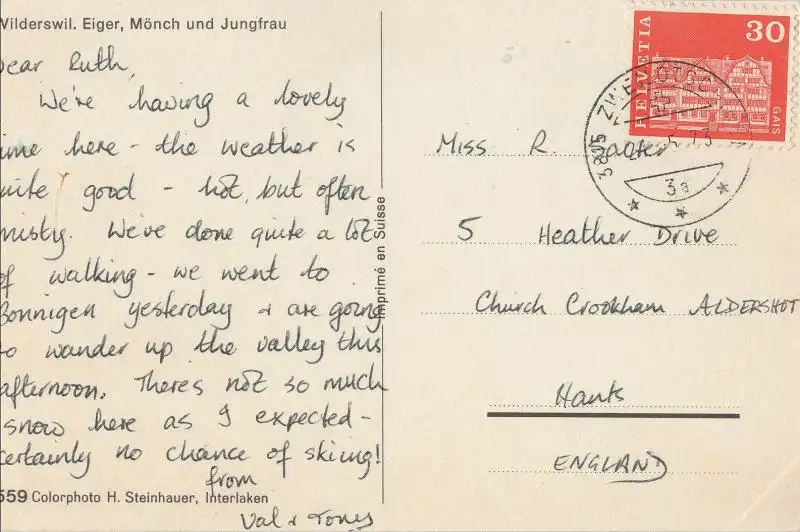 Wilderswil. Eiger, Mönch und Jungfrau
Dear Ruth,
We're having a lovely
time here - the weather is
quite good - hot, but often
misty. We've done quite a lot
of walking - we went to
Bonnigen yesterday & are going
to wander up the valley this
afternoon. Theres not so much
snow here as I expected -
certainly no chance of skiing!
from
Val & Tony
559 Colorphoto H. Steinhauer, Interlaken
Imprimé en Suisse
HELVETIA
30
GAIS
3815
3a
Miss R.
5 Heather Drive
Church Crookham ALDERSHOT
Hants
ENGLAND